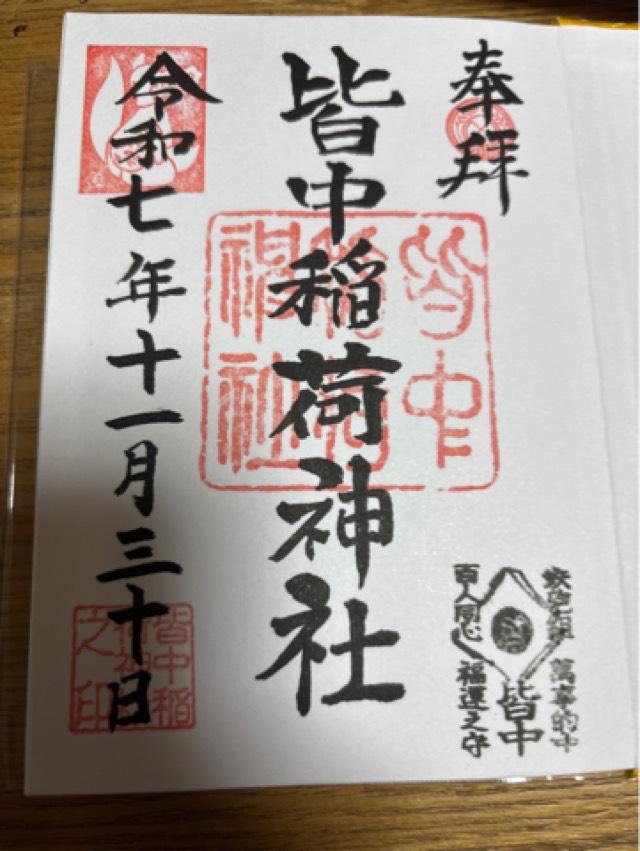 奉拝
皆中稲荷神社
令和七年十一月三十日
皆中
稲荷
神社
皆中稲
荷神社
之印
鉄砲組
百人同心
皆中
萬事的中
福運之守